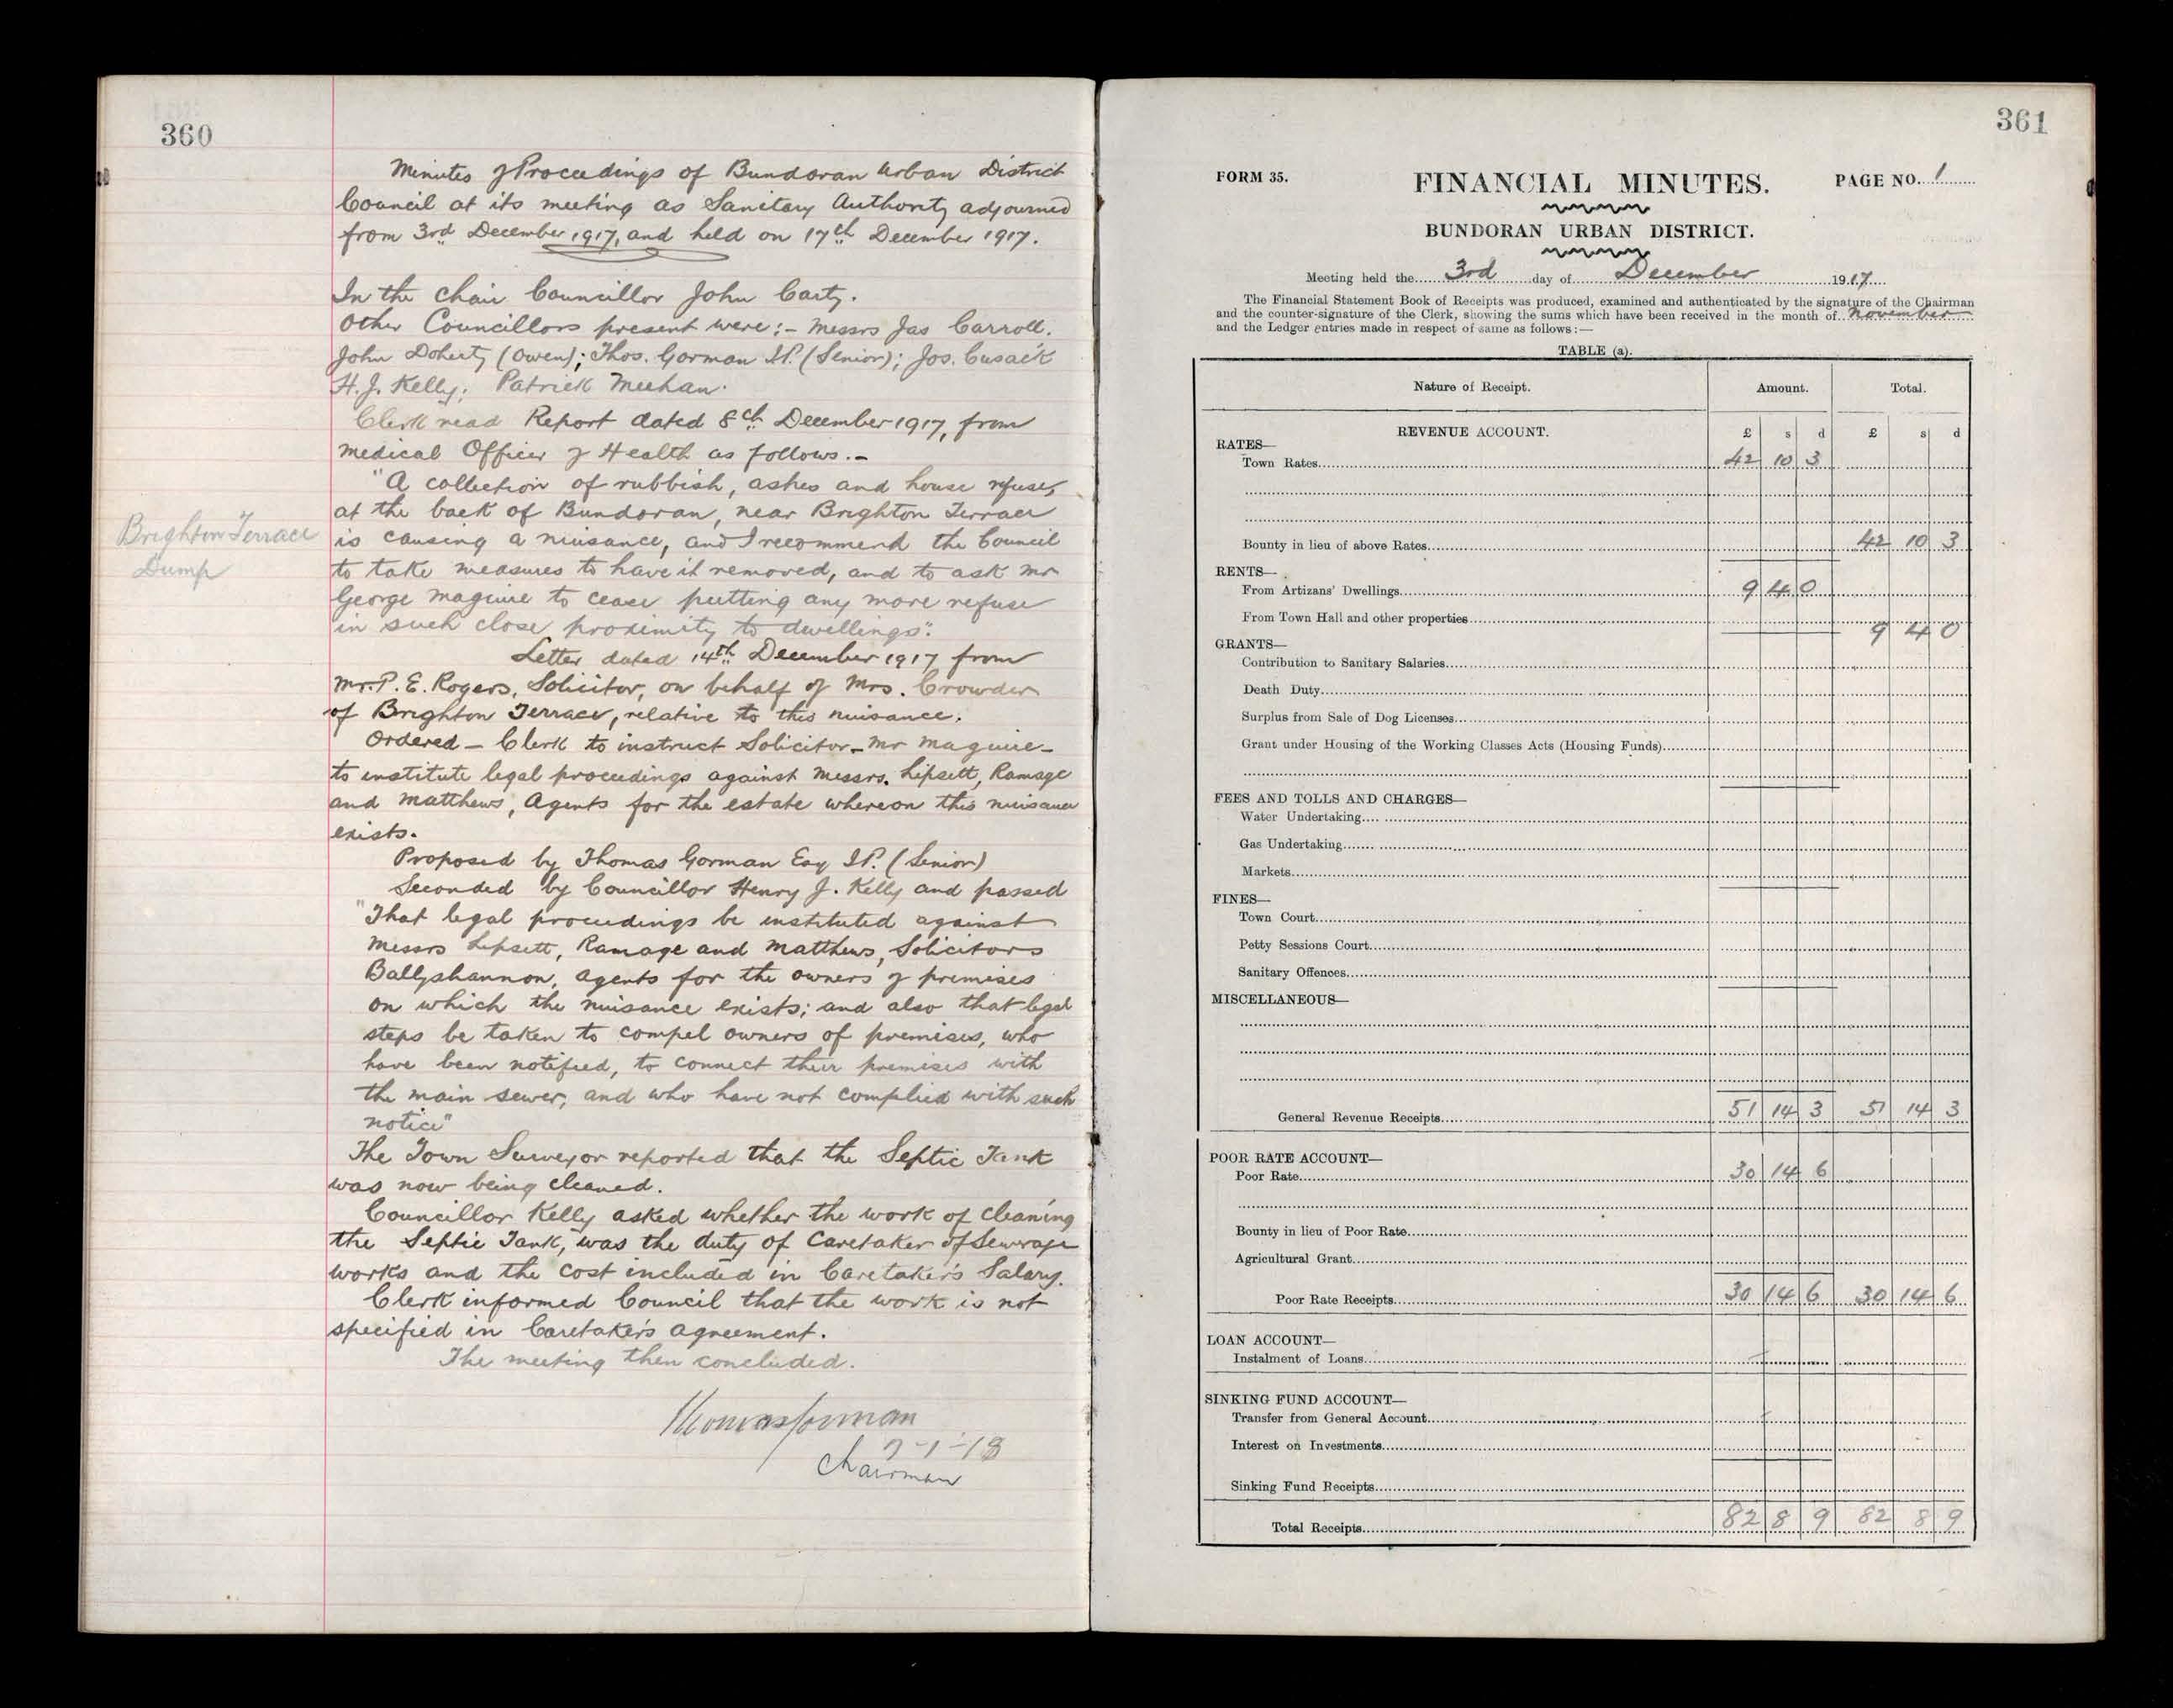 360
Minutes of Proceedings of Bundoran Urban District
Council at its meeting as Sanitary Authority adjourned
from 3rd December 1917, and held on 17th December 1917.
In the Chair Councillor John Carty.
Other Councillors present were:- Messrs Jas Carroll.
John Doherty (Owen); Thos. Gorman J.P. (Senior); Jos. Cusack
H. J. Kelly; Patrick Meehan.
Clerk read Report dated 8th December 1917, from
Medical Officer of Health as follows.-
"A collection of rubbish, ashes and house refuse,
at the back of Bundoran, near Brighton Terrace
Brighton Terrace
Dump
is causing a nuisance, and I recommend the Council
to take measures to have it removed, and to ask Mr
George Maguire to cease putting any more refuse
in such close proximity to dwellings".
Letter dated 14th December 1917 from
Mr. P. E. Rogers, Solicitor, on behalf of Mrs. Crowder
of Brighton Terrace, relative to this nuisance.
Ordered - Clerk to instruct Solicitor - Mr Maguire -
to institute legal proceedings against Messrs. Lipsett, Ramage
and Matthews, Agents for the estate whereon this nuisance
exists.
Proposed by Thomas Gorman Esq J.P. (Senior)
Seconded by Councillor Henry J. Kelly and passed
"That legal proceedings be instituted against
Messrs Lipsett, Ramage and Matthews, Solicitors
Ballyshannon, Agents for the owners of premises
on which the nuisance exists; and also that legal
steps be taken to compel owners of premises, who
have been notified, to connect their premises with
the main sewer, and who have not complied with such
notice"
The Town Surveyor reported that the Septic Tank
was now being cleaned.
Councillor Kelly asked whether the work of cleaning
the Septic Tank, was the duty of Caretaker of Sewerage
works and the cost included in Caretaker's Salary.
Clerk informed Council that the work is not
specified in Caretaker's agreement.
The meeting then concluded.
Thomas Gorman
7-1-18
Chairman
361
FORM 35.
FINANCIAL MINUTES.
PAGE NO. 1
BUNDORAN URBAN DISTRICT.
Meeting held the 3rd day of December 1917
The Financial Statement Book of Receipts was produced, examined and authenticated by the signature of the Chairman
and the counter-signature of the Clerk, showing the sums which have been received in the month of November
and the Ledger entries made in respect of same as follows:—
TABLE (a).
Nature of Receipt. Amount. Total.
REVENUE ACCOUNT. £ s d £ s d
RATES—
Town Rates 42 10 3
Bounty in lieu of above Rates 42 10 3
RENTS—
From Artizans' Dwellings 9 4 0
From Town Hall and other properties 9 4 0
GRANTS—
Contribution to Sanitary Salaries
Death Duty
Surplus from Sale of Dog Licenses
Grant under Housing of the Working Classes Acts (Housing Funds)
FEES AND TOLLS AND CHARGES—
Water Undertaking
Gas Undertaking
Markets
FINES—
Town Court
Petty Sessions Court
Sanitary Offences
MISCELLANEOUS—
General Revenue Receipts 51 14 3 51 14 3
POOR RATE ACCOUNT—
Poor Rate 30 14 6
Bounty in lieu of Poor Rate
Agricultural Grant
Poor Rate Receipts 30 14 6 30 14 6
LOAN ACCOUNT—
Instalment of Loans
SINKING FUND ACCOUNT—
Transfer from General Account
Interest on Investments
Sinking Fund Receipts
Total Receipts 82 8 9 82 8 9